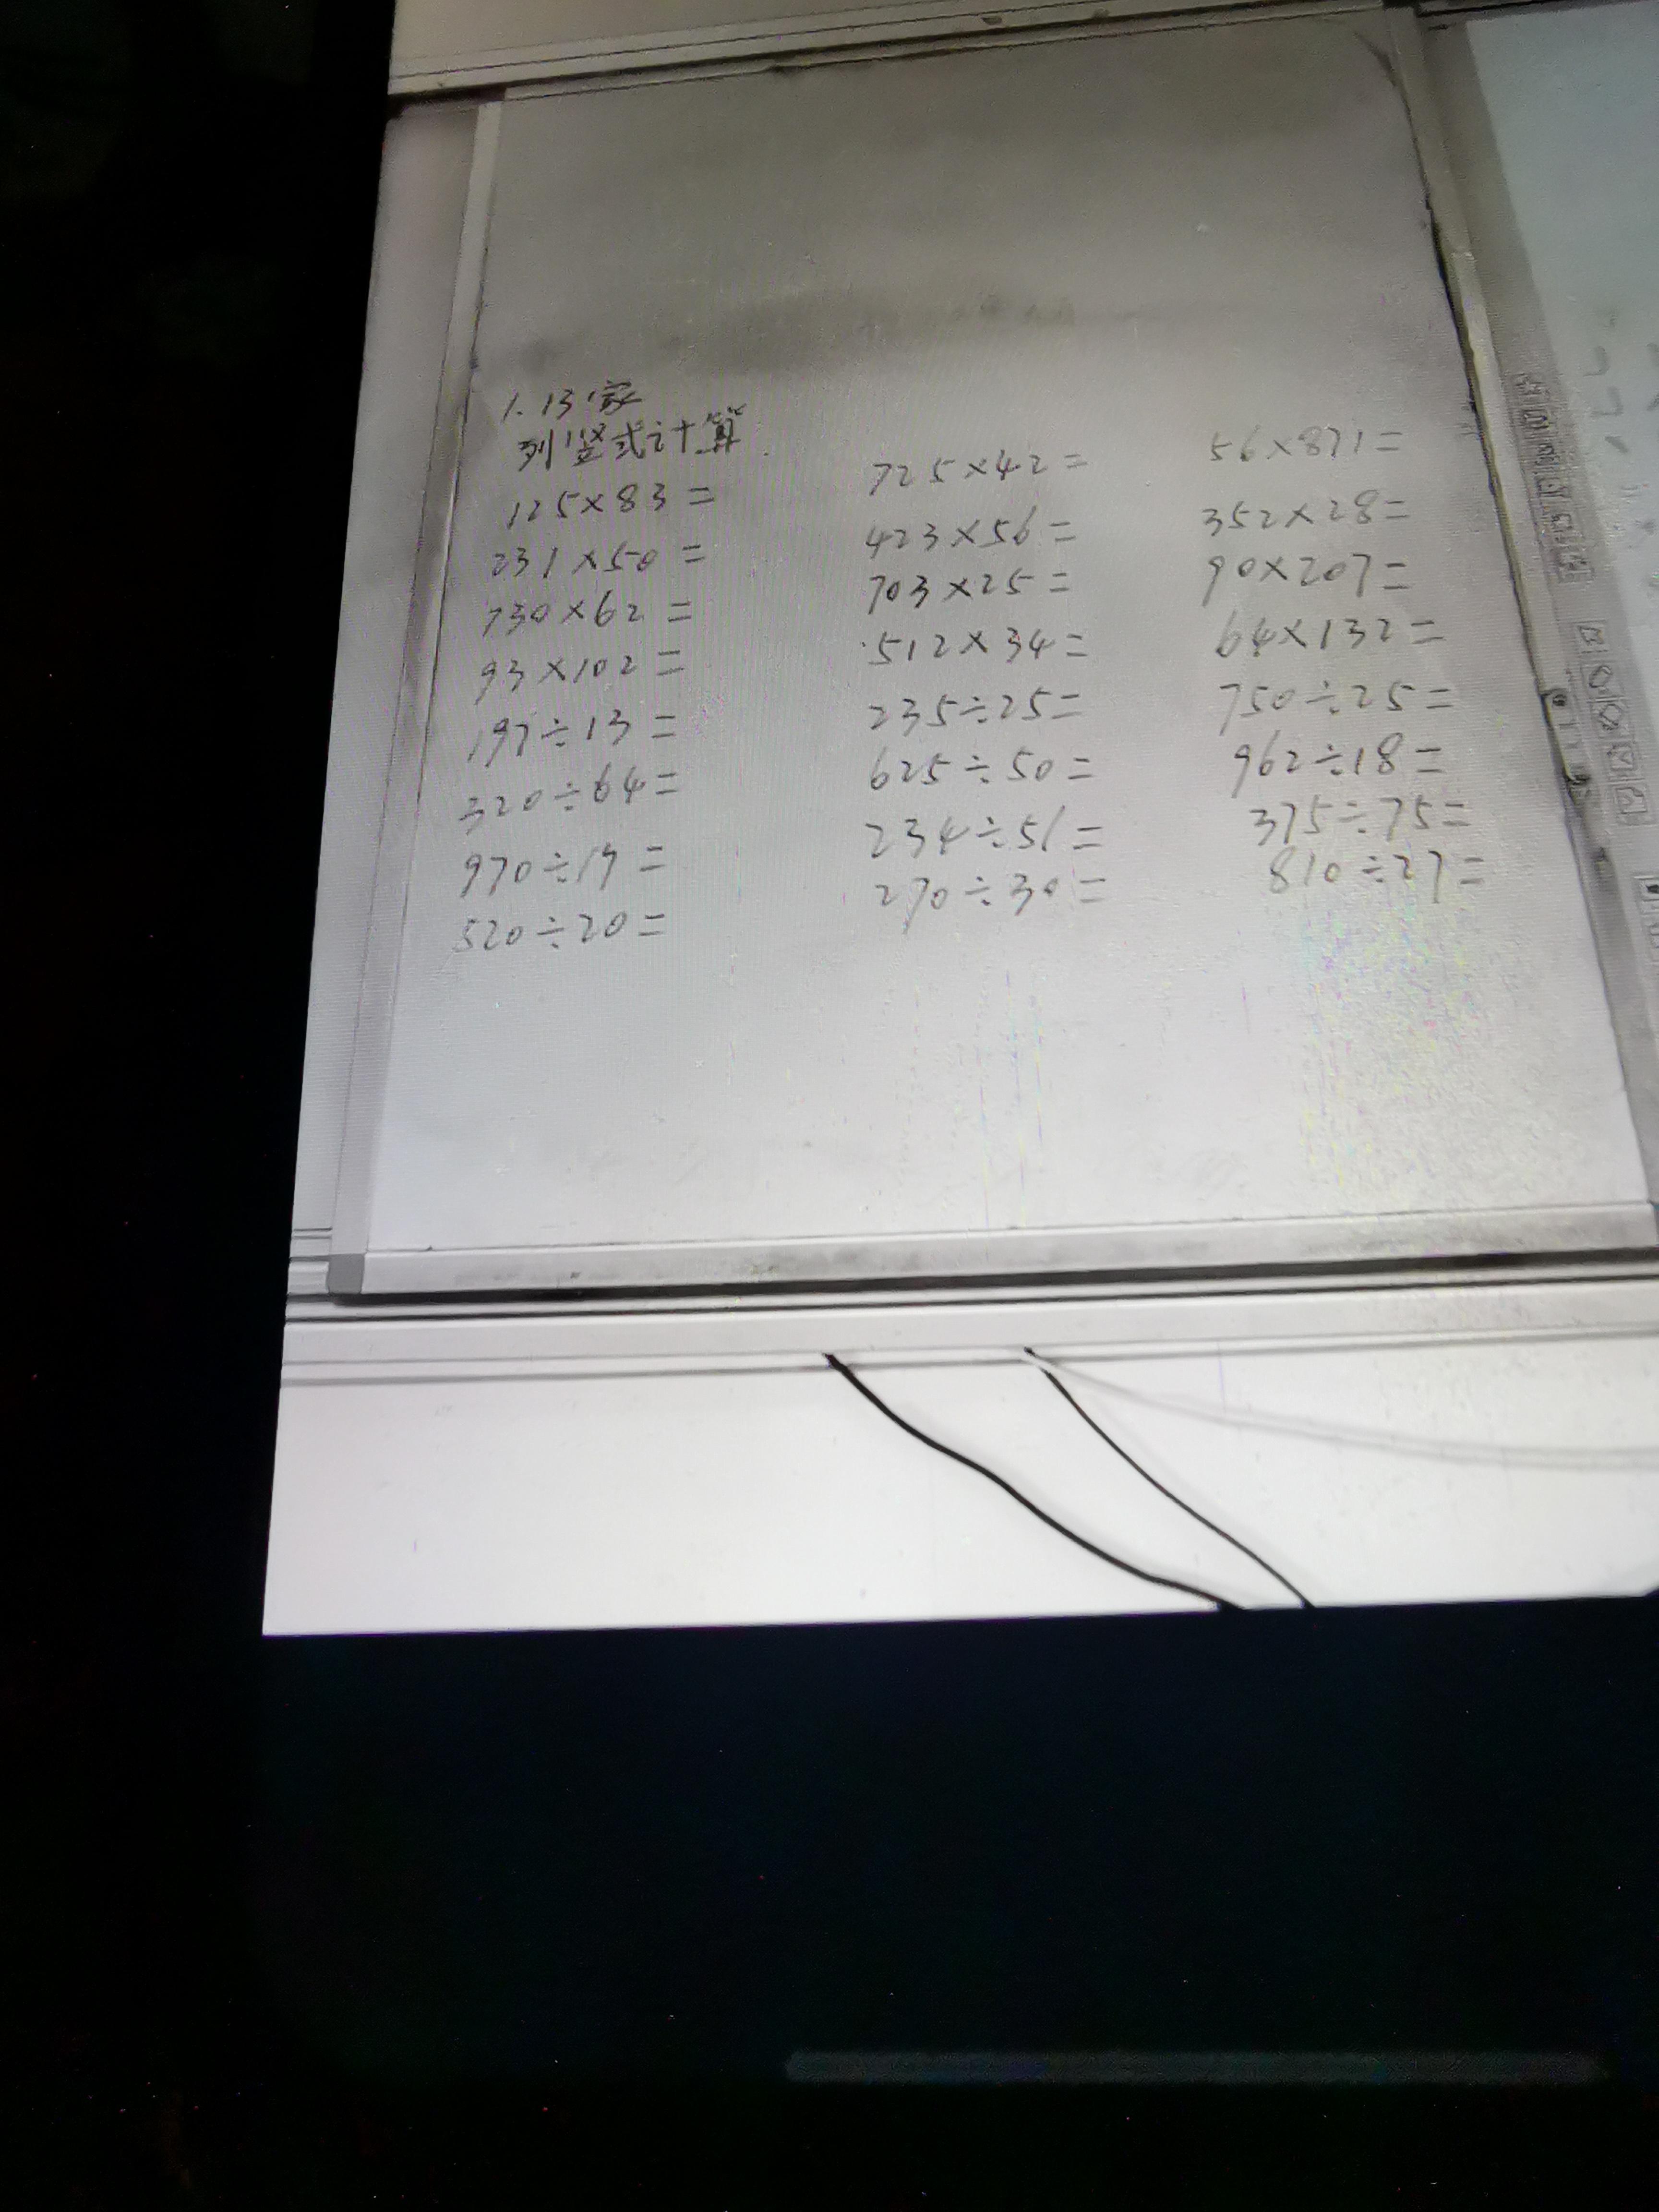 1.13家
列竖式计算
125×83=
231×50=
730×62=
93×102=
197÷13=
320÷64=
970÷19=
520÷20=
725×42=
423×56=
703×25=
512×34=
235÷25=
625÷50=
234÷51=
270÷30=
56×871=
352×28=
90×207=
64×132=
750÷25=
962÷18=
375÷75=
810÷27=